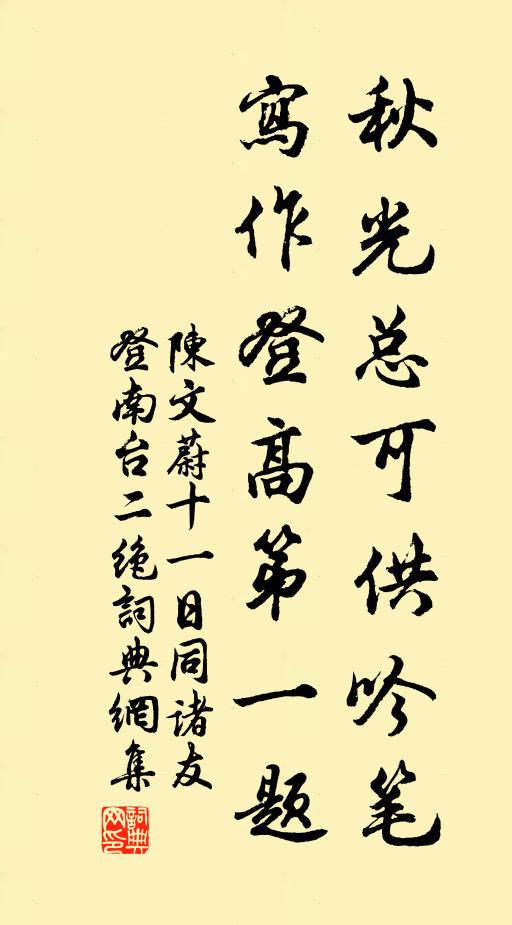 秋光总可供吟笔
寫作登高第一题
陳文蔚十一日同諸友
登南台二绝詞典網集
詞典
网印